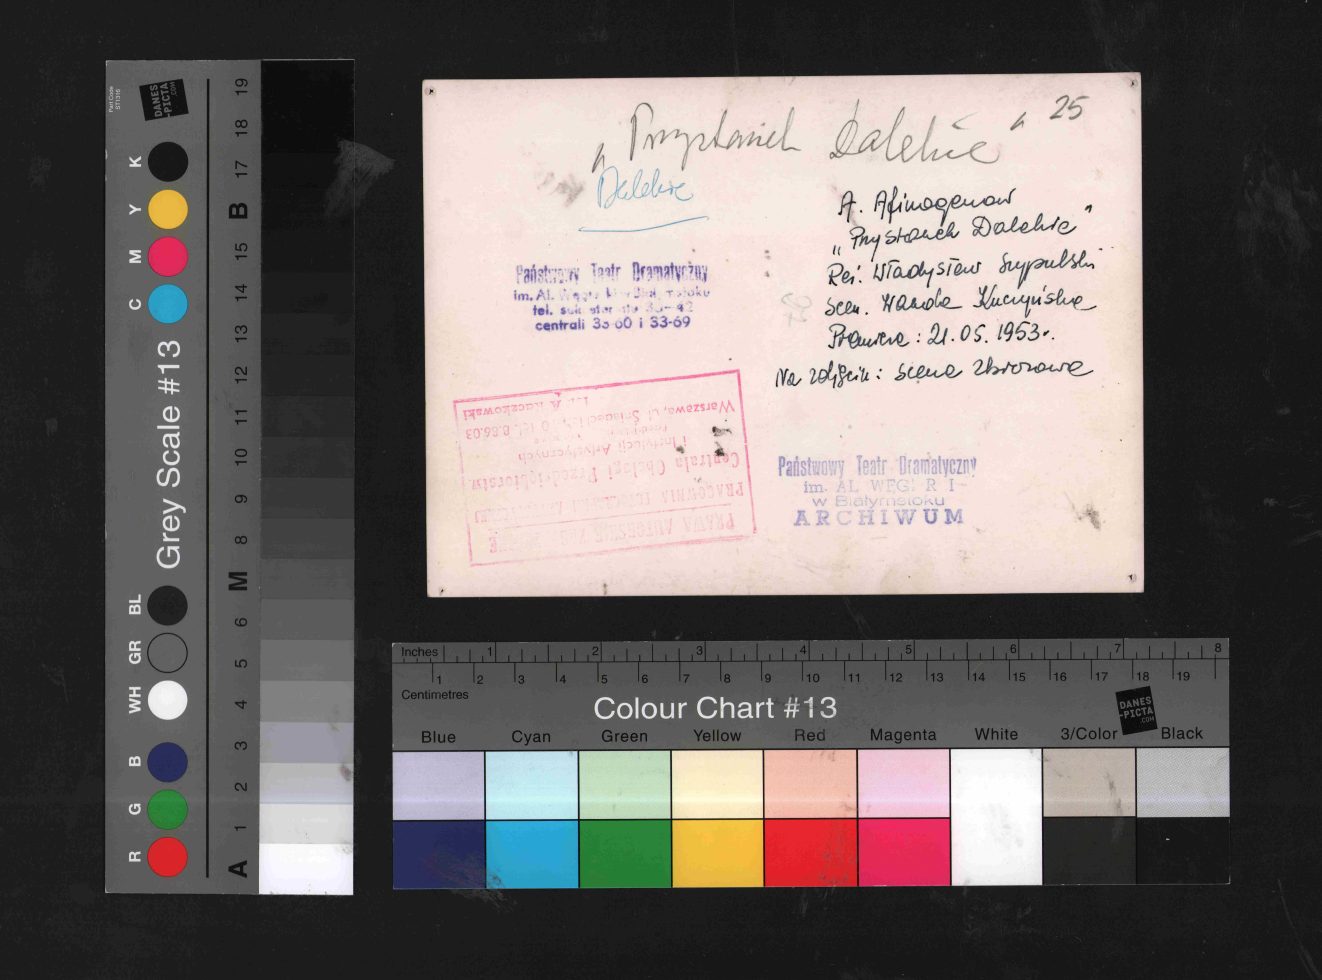 Part Code
ST1316
DANES
-PICTA
.COM
Grey Scale #13
K
Y
M
C
BL
GR
WH
B
G
R
19
18
17
B
15
14
13
12
11
10
9
8
M
6
5
4
3
2
1
A
„Przystanek Dalekie" 25
Dalekie
A. Afinogenow
„Przystanek Dalekie"
Reż. Władysław Szypulski
Scen. Wanda Kuczyńska
Premiera: 21.05.1953r.
Na zdjęciu: scena zbiorowa
Państwowy Teatr Dramatyczny
im. Al. Węgierki w Białymstoku
tel.
centrali 33-60 i 33-69
PRAWA AUTORSKIE
PRACOWNIA
Centrala Obsługi Przedsiębiorstw
i Instytucji Artystycznych
Warszawa, ul. Śniadeckich 10 tel. 8.66.03
Kaczkowski
Państwowy Teatr Dramatyczny
im. AL. WĘGIERKI
w Białymstoku
ARCHIWUM
Inches 1 2 3 4 5 6 7 8
1 2 3 4 5 6 7 8 9 10 11 12 13 14 15 16 17 18 19
Centimetres
Colour Chart #13
DANES
-PICTA
.COM
Blue Cyan Green Yellow Red Magenta White 3/Color Black